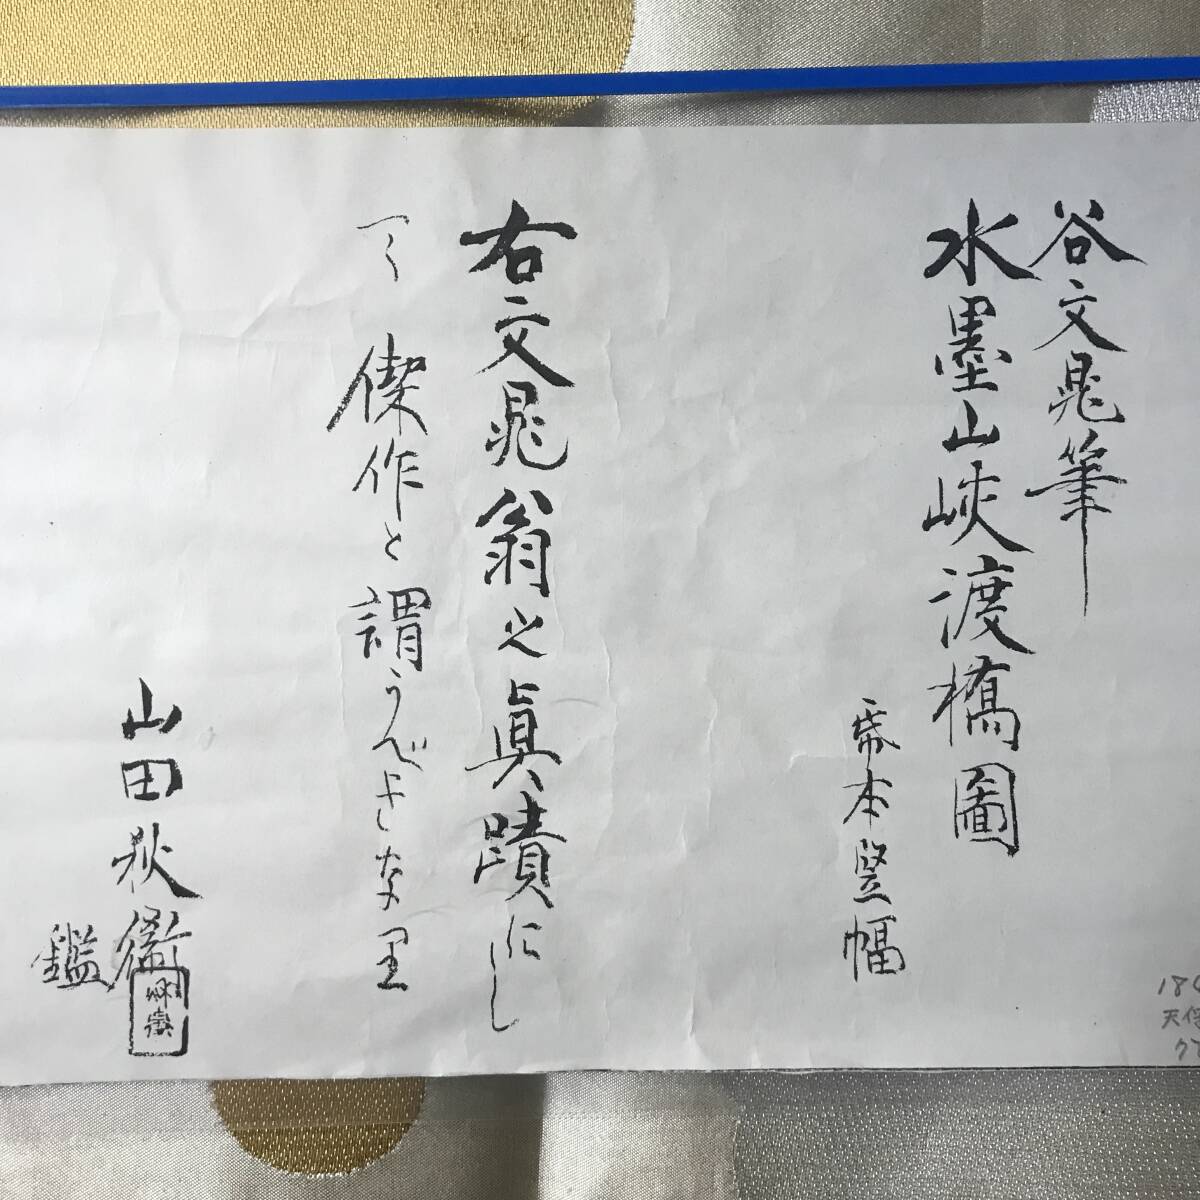 谷文晁筆
水墨山峡渡橋圖
本竪幅
右文晁翁之眞蹟にし
て 傑作と謂うべきなり
山田秋衛
鑑
184
天保
77